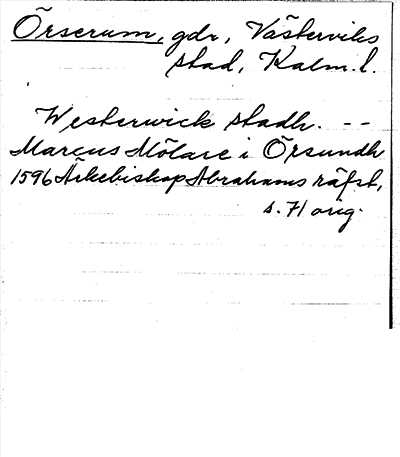 Örserum, gdr, Västerviks
stad, Kalm. l.
Westerwick stadh. --
Marcus Mölare i Örsundh
1596 Ärkebiskop Abrahams räfst,
s. 71 orig.